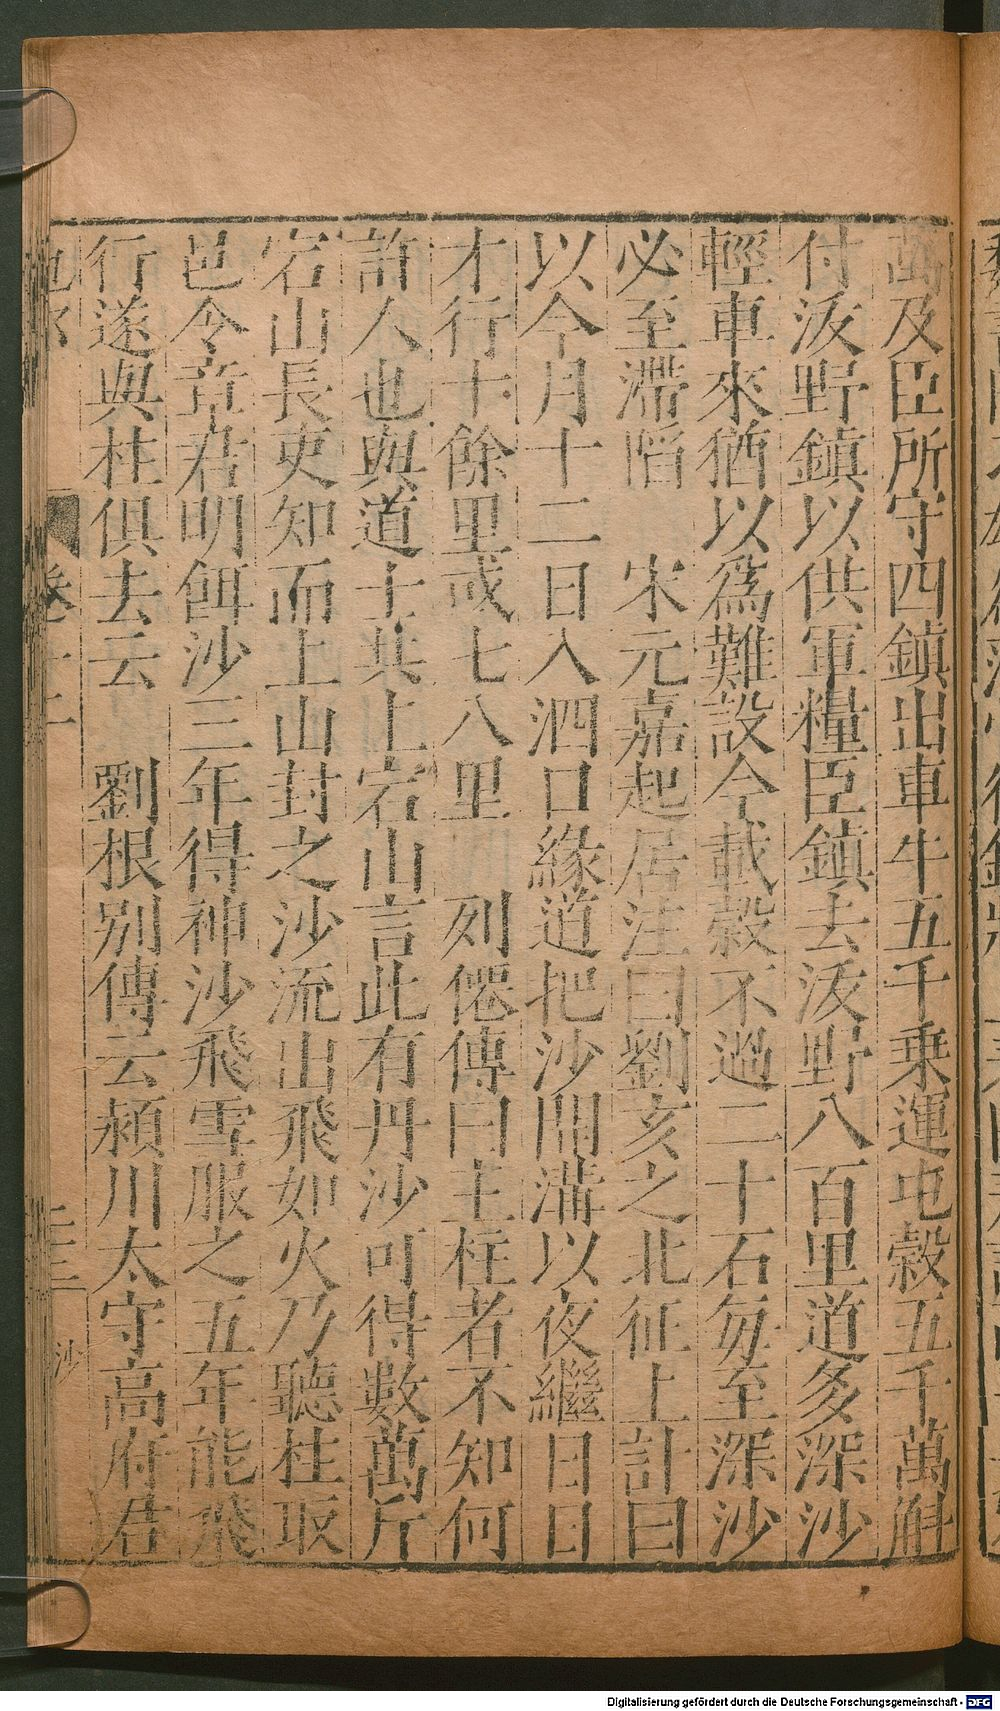 西及臣所守四鎮出車牛五千乗運屯穀五千萬斛
付沃野鎮以供軍糧臣鎮去沃野八百里道多深沙
輕車來猶以為難設今載穀不過二十石毎至深沙
必至滯陷 宋元嘉起居注曰劉亥之北征上計曰
以今月十二日入泗口緣道把沙開溝以夜繼日日
才行十餘里或七八里 列僊傳曰主柱者不知何
許人也與道士共上宕山言此有丹沙可得數萬斤
宕山長吏知而上山封之沙流出飛如火乃聽柱取
邑令章君明餌沙三年得神沙飛雪服之五年能飛
行遂與柱俱去云 劉根别傳云潁川太守高府君
地部 卷十二 二十三 沙
Digitalisierung gefördert durch die Deutsche Forschungsgemeinschaft - DFG